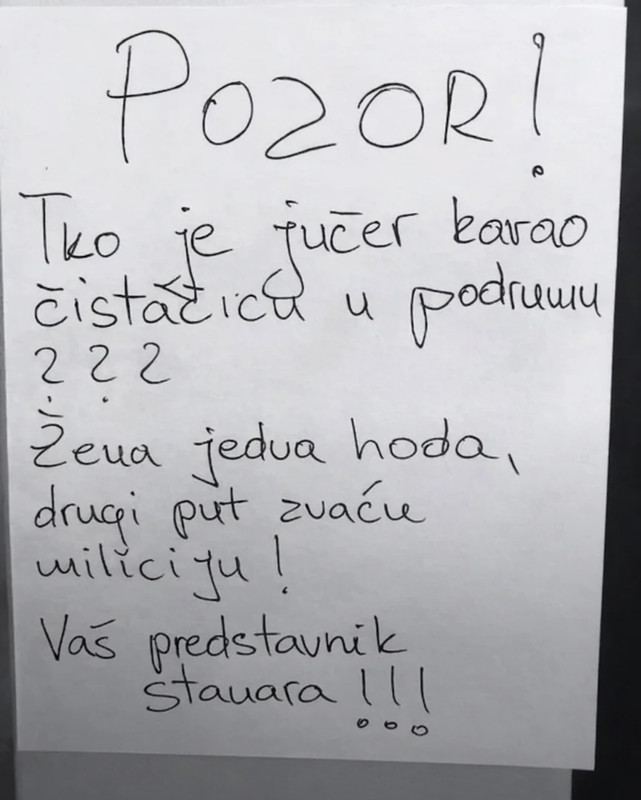 POZOR!
Tko je jučer karao
čistačicu u podrumu
???
Žena jedva hoda,
drugi put zvaću
miliciju!
Vaš predstavnik
stanara!!!